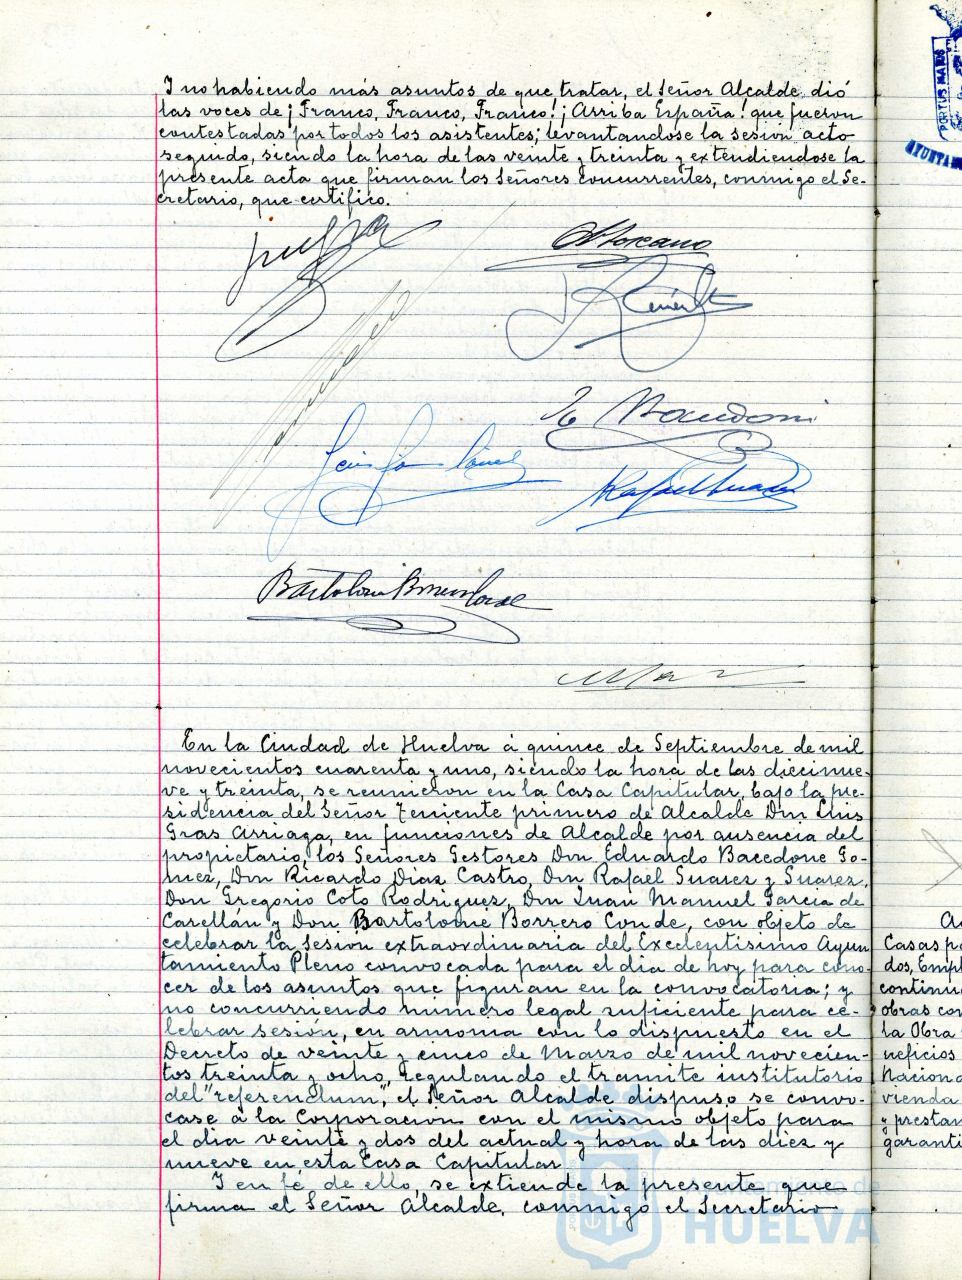 Y no habiendo más asuntos de que tratar, el Señor Alcalde, dió
las voces de ¡Franco, Franco, Franco! ¡Arriba España! que fueron
contestadas por todos los asistentes; levantandose la sesión acto
seguido, siendo la hora de las veinte y treinta y extendiendose la
presente acta que firman los Señores Concurrentes, conmigo el Se-
cretario, que certifico.
Rafael Suarez
Bartolomé Borrero Conde
En la Ciudad de Huelva á quince de Septiembre de mil
novecientos cuarenta y uno, siendo la hora de las diecinue-
ve y treinta, se reunieron en la Casa Capitular, bajo la pre-
sidencia del Señor Teniente primero de Alcalde Don Luis
Gras Arriaga, en funciones de Alcalde por ausencia del
propietario, los Señores Gestores Don Eduardo Bacedone Go-
mez, Don Ricardo Diaz Castro, Don Rafael Suarez y Suarez,
Don Gregorio Coto Rodriguez, Don Juan Manuel Garcia de
Carellán y Don Bartolomé Borrero Conde, con objeto de
celebrar la Sesión extraordinaria del Excelentisimo Ayun
tamiento Pleno convocada para el dia de hoy para cono-
cer de los asuntos que figuran en la convocatoria; y
no concurriendo número legal suficiente para ce-
lebrar sesión, en armonia con lo dispuesto en el
Decreto de veinte y cinco de Marzo de mil novecien-
tos treinta y ocho, regulando el tramite institutorio
del "referendum", el Señor Alcalde dispuso se convo-
case á la Corporación con el mismo objeto para
el dia veinte y dos del actual y hora de las diez y
nueve en esta Casa Capitular.
Y en fé de ello, se extiende la presente que
firma el Señor Alcalde, conmigo el Secretario
Ayuntamiento de
HUELVA
PORTUS MARIS
AYUNTAM
Casas pa
dos, Empl
continua
obras con
la Obra
neficios
Naciona
vienda
y prestan
garanti